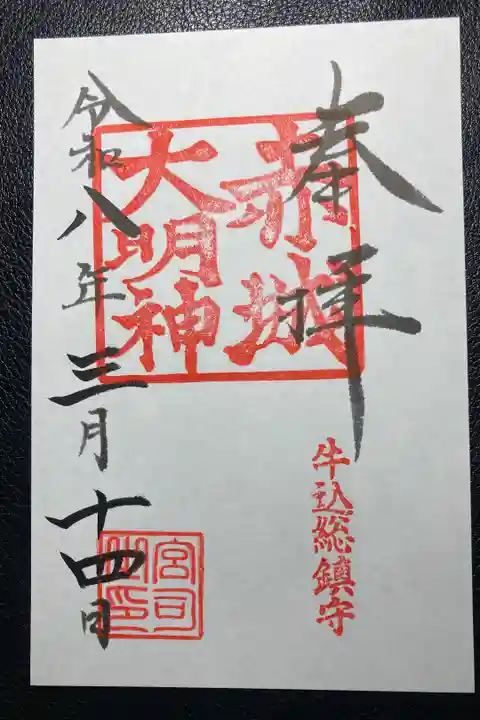 奉拝
赤城
大明神
牛込総鎮守
令和八年三月十四日
宮司
之印